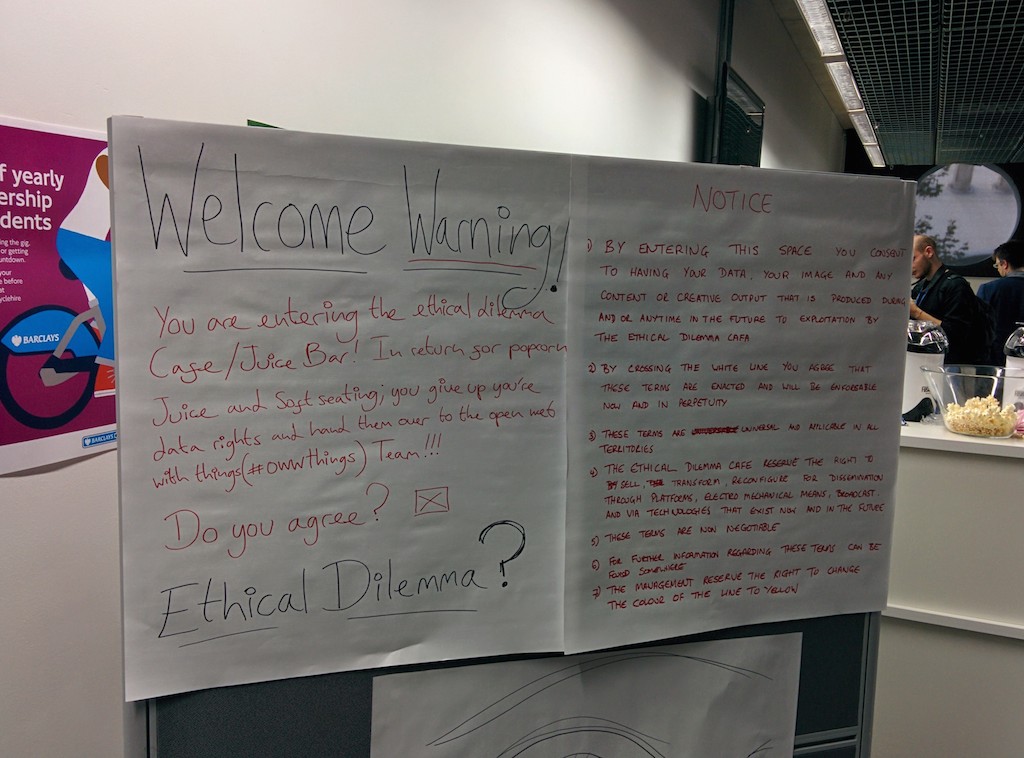 f yearly
ership
dents
ing the gig,
or getting
untdown.
your
e before
at
cyclehire
BARCLAYS
BARCLAYS C
Welcome Warning!
You are entering the ethical dilemma
Cafe/Juice Bar! In return for popcorn
Juice and Soft seating; you give up you're
data rights and hand them over to the open web
with things(#owwthings) Team!!!
Do you agree?
Ethical Dilemma?
NOTICE
1) BY ENTERING THIS SPACE YOU CONSENT
TO HAVING YOUR DATA, YOUR IMAGE AND ANY
CONTENT OR CREATIVE OUTPUT THAT IS PRODUCED DURING
AND OR ANYTIME IN THE FUTURE TO EXPLOITATION BY
THE ETHICAL DILEMMA CAFA
2) BY CROSSING THE WHITE LINE YOU AGREE THAT
THESE TERMS ARE ENACTED AND WILL BE ENFORSABLE
NOW AND IN PERPETUITY
3) THESE TERMS ARE UNIVERSAL AND APLICABLE IN ALL
TERRITORIES
4) THE ETHICAL DILEMMA CAFE RESERVE THE RIGHT TO
SELL, TRANSFORM, RECONFIGURE FOR DISSEMINATION
THROUGH PLATFORMS, ELECTRO MECHANICAL MEANS, BROADCAST
AND VIA TECHNOLOGIES THAT EXIST NOW AND IN THE FUTURE
5) THESE TERMS ARE NON NEGOTIABLE
6) FOR FURTHER INFORMATION REGARDING THESE TERMS CAN BE
FOUND SOMEWHERE
7) THE MANAGEMENT RESERVE THE RIGHT TO CHANGE
THE COLOUR OF THE LINE TO YELLOW